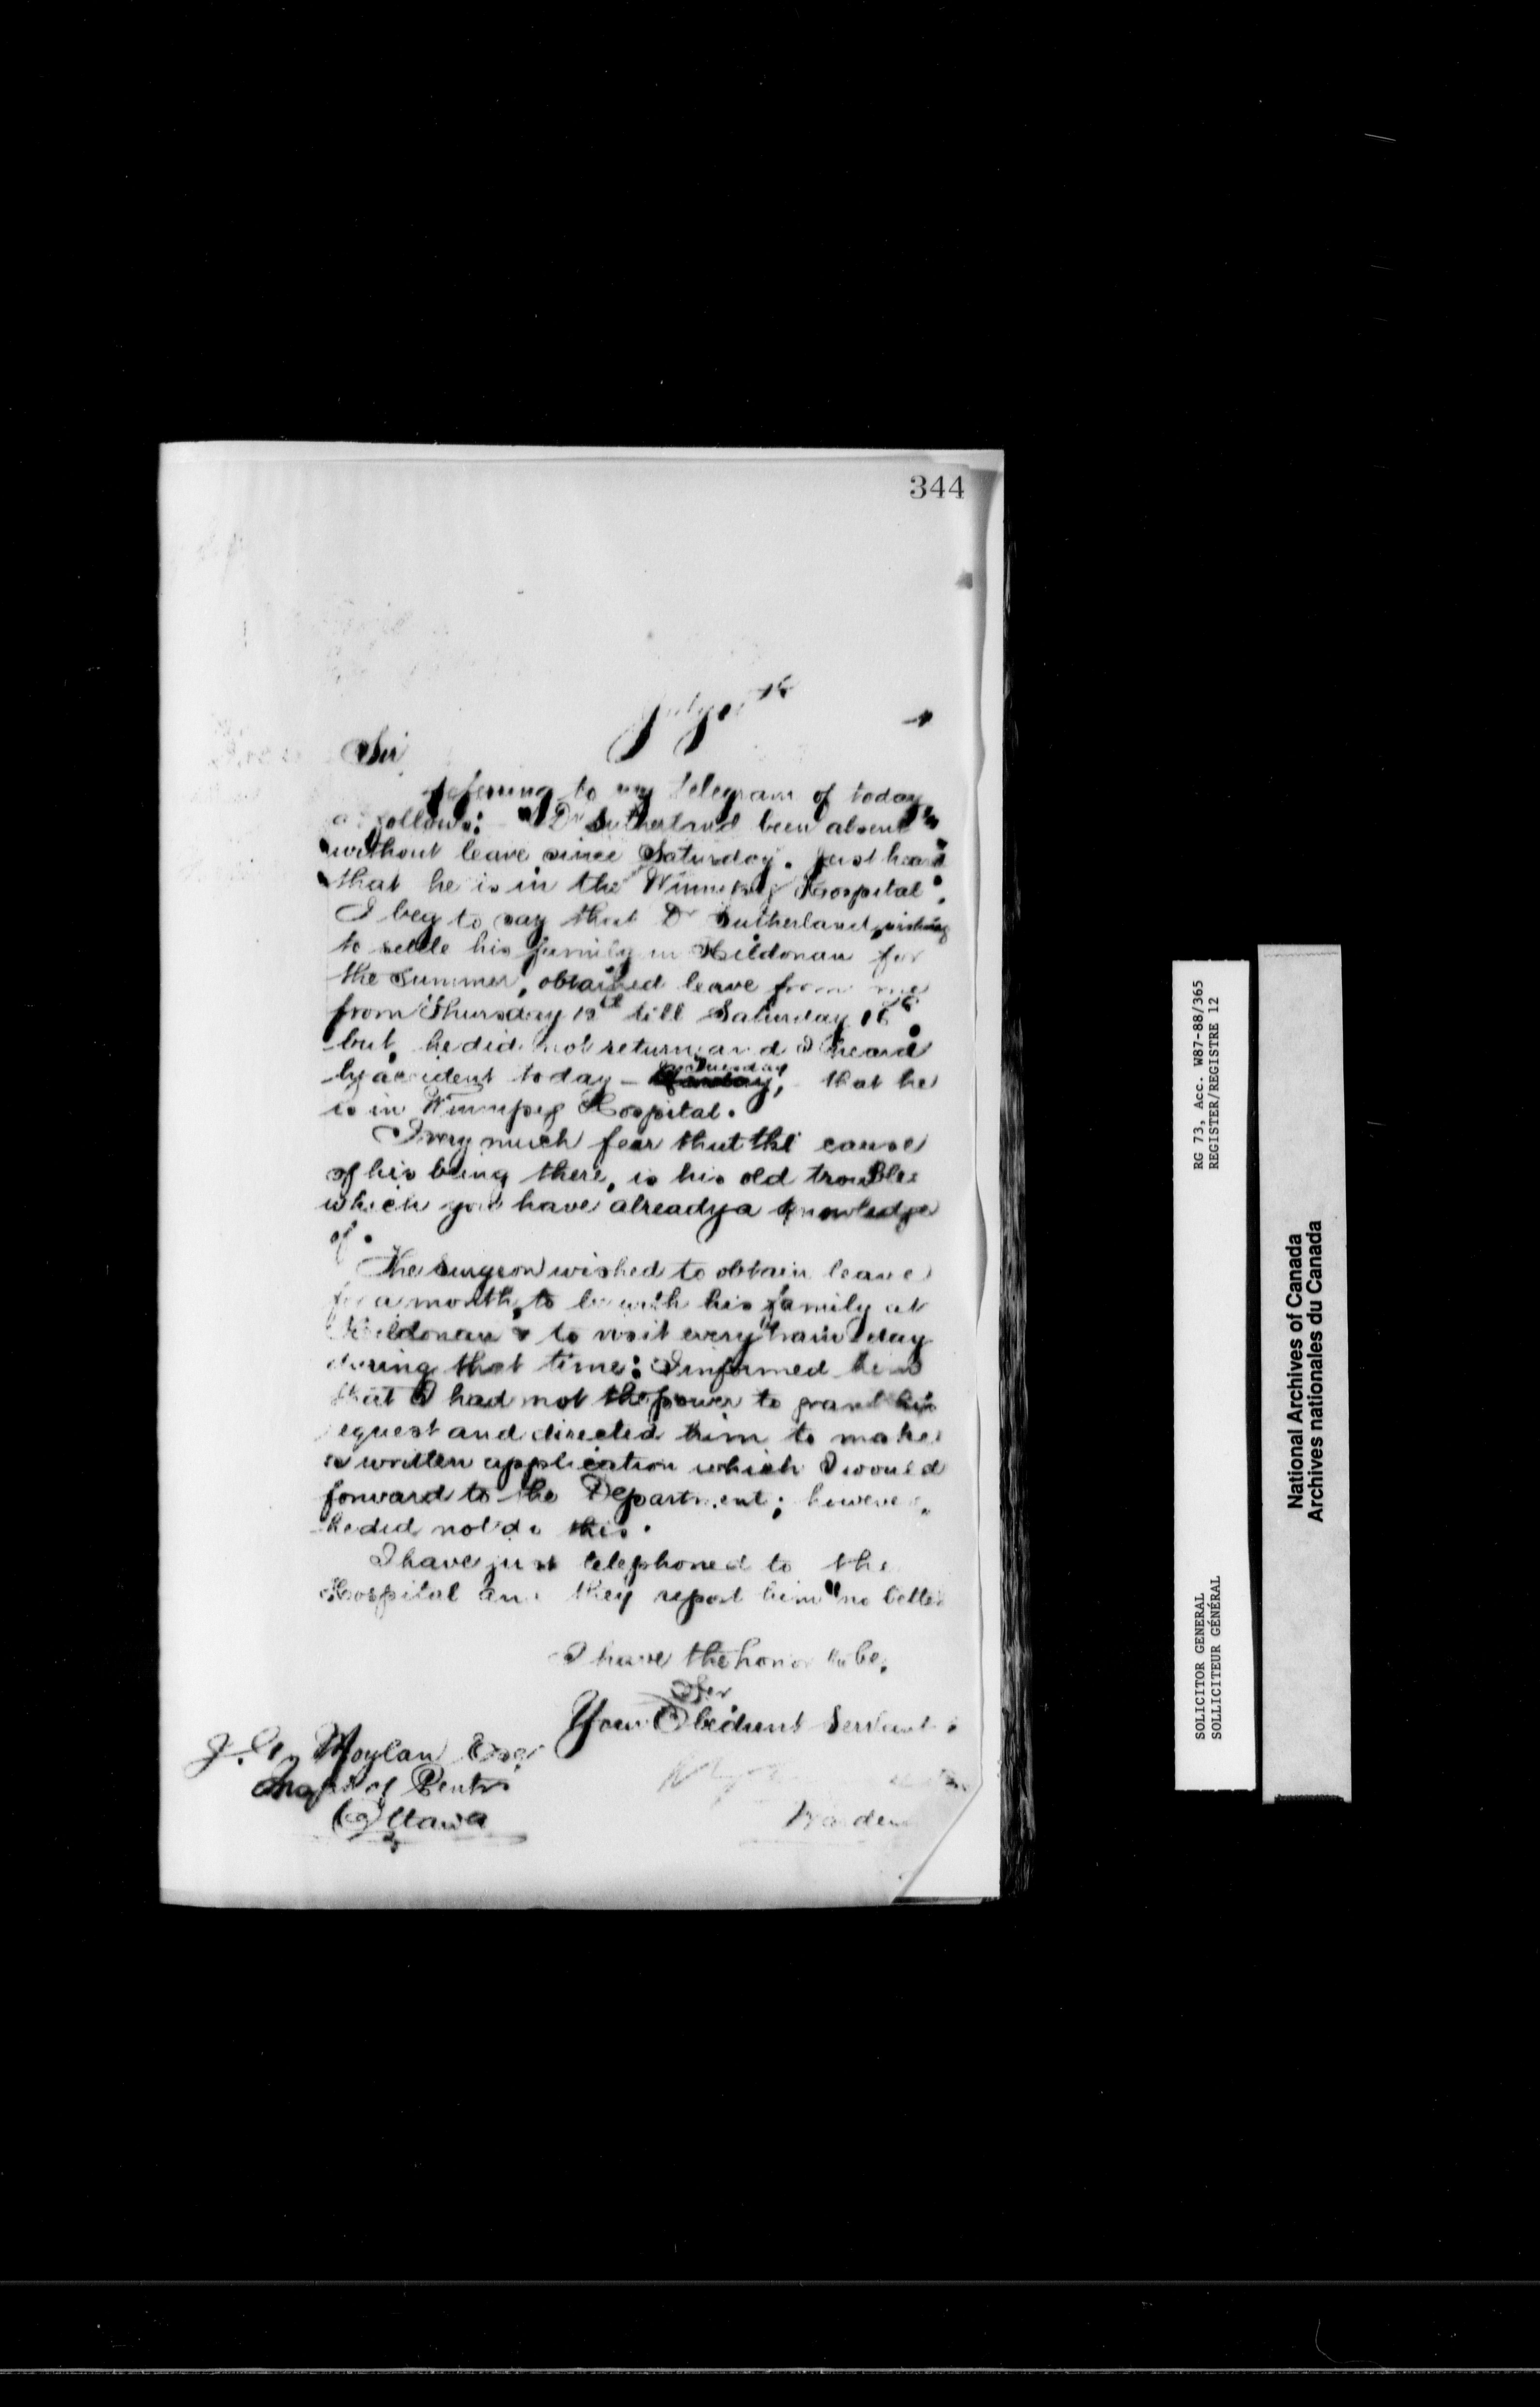 344
July
Sir
referring to my telegram of today
as follows: "Dr Sutherland been absent
without leave since Saturday. Just heard
that he is in the Winnipeg Hospital".
I beg to say that Dr Sutherland, wishing
to settle his family in Kildonan for
the Summer, obtained leave from me
from Thursday till Saturday
but, he did not return, and I heard
by accident today - Tuesday, that he
is in Winnipeg Hospital.
I very much fear that the cause
of his being there, is his old trouble
which you have already a knowledge
of.
The Surgeon wished to obtain leave
for a month, to be with his family at
Kildonan & to visit every train day
during that time: I informed him
that I had not the power to grant his
request and directed him to make
a written application which I would
forward to the Department; however,
he did not do this.
I have just telephoned to the
Hospital and they report him "no better
I have the honor to be,
Sir
Your Obedient Servant
J. G. Moylan Esqr
Inspr of Pentrs
Ottawa
Warden
RG 73, Acc. W87-88/365
REGISTER/REGISTRE 12
SOLICITOR GENERAL
SOLLICITEUR GÉNÉRAL
National Archives of Canada
Archives nationales du Canada